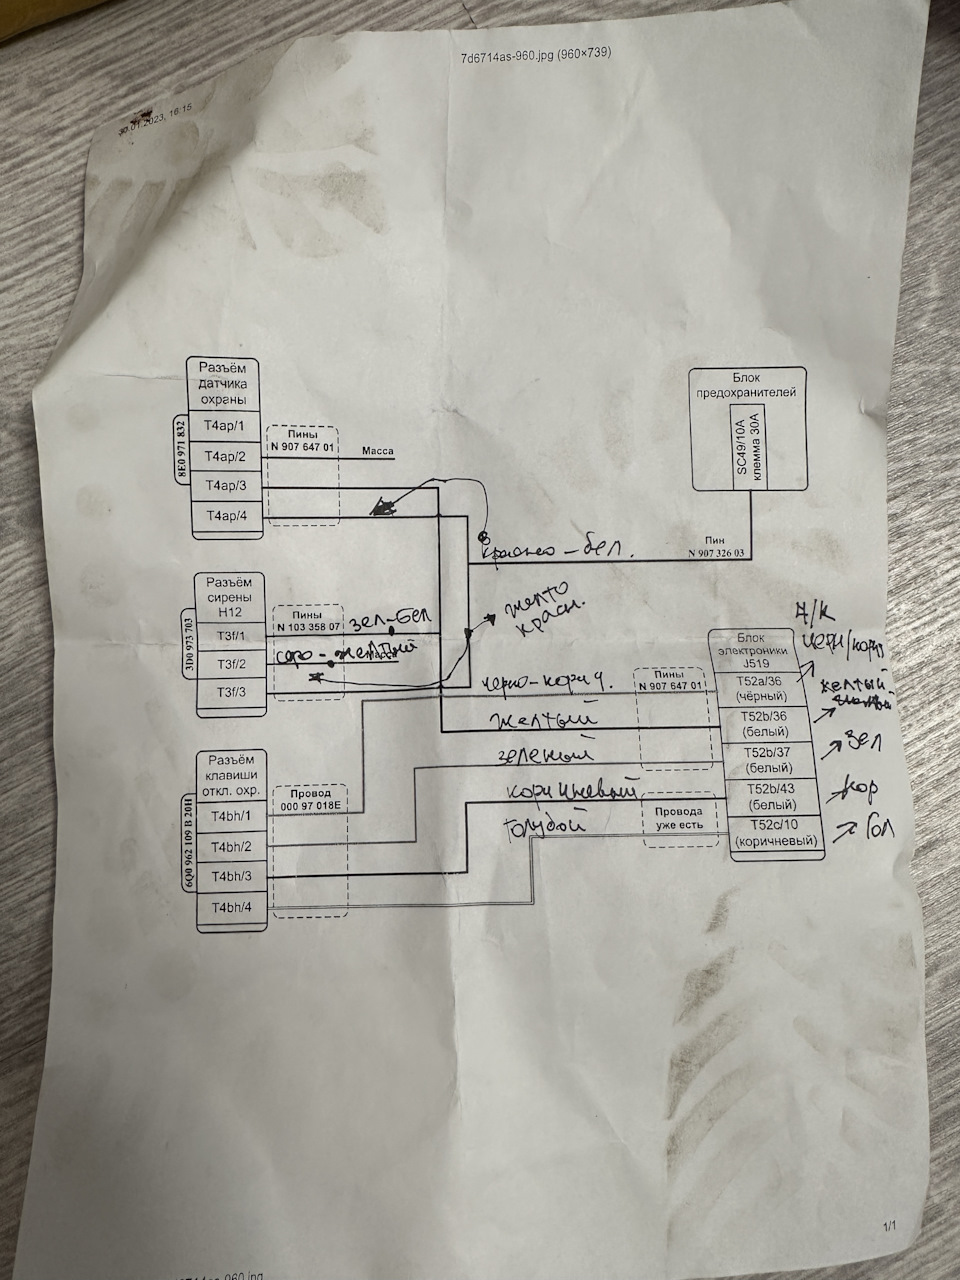 7d6714as-960.jpg (960×739)
30.01.2023, 16:15
Разъём
датчика
охраны
T4ap/1
T4ap/2
T4ap/3
T4ap/4
8E0 971 832
Пины
N 907 647 01
Масса
Блок
предохранителей
SC49/10A
клемма 30А
Пин
N 907 326 03
красно-бел.
Разъём
сирены
H12
T3f/1
T3f/2
T3f/3
3D0 973 703
Пины
N 103 358 07
зел-бел
серо-желтый
желто
красн.
Блок
электроники
J519
T52a/36
(чёрный)
T52b/36
(белый)
T52b/37
(белый)
T52b/43
(белый)
T52c/10
(коричневый)
Пины
N 907 647 01
Провода
уже есть
черно-корич.
желтый
зеленый
коричневый
голубой
желтый
зел
кор
гол
Разъём
клавиши
откл. охр.
T4bh/1
T4bh/2
T4bh/3
T4bh/4
6Q0 962 109 B 20H
Провод
000 97 018E
1/1